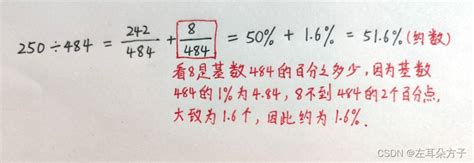 250÷484 = 242/484 + 8/484 = 50% + 1.6% = 51.6%(约数)
看8是基数484的百分之多少，因为基数
484的1%为4.84，8不到484的2个百分点，
大致为1.6个，因此约为1.6%.
CSDN @左耳朵方子